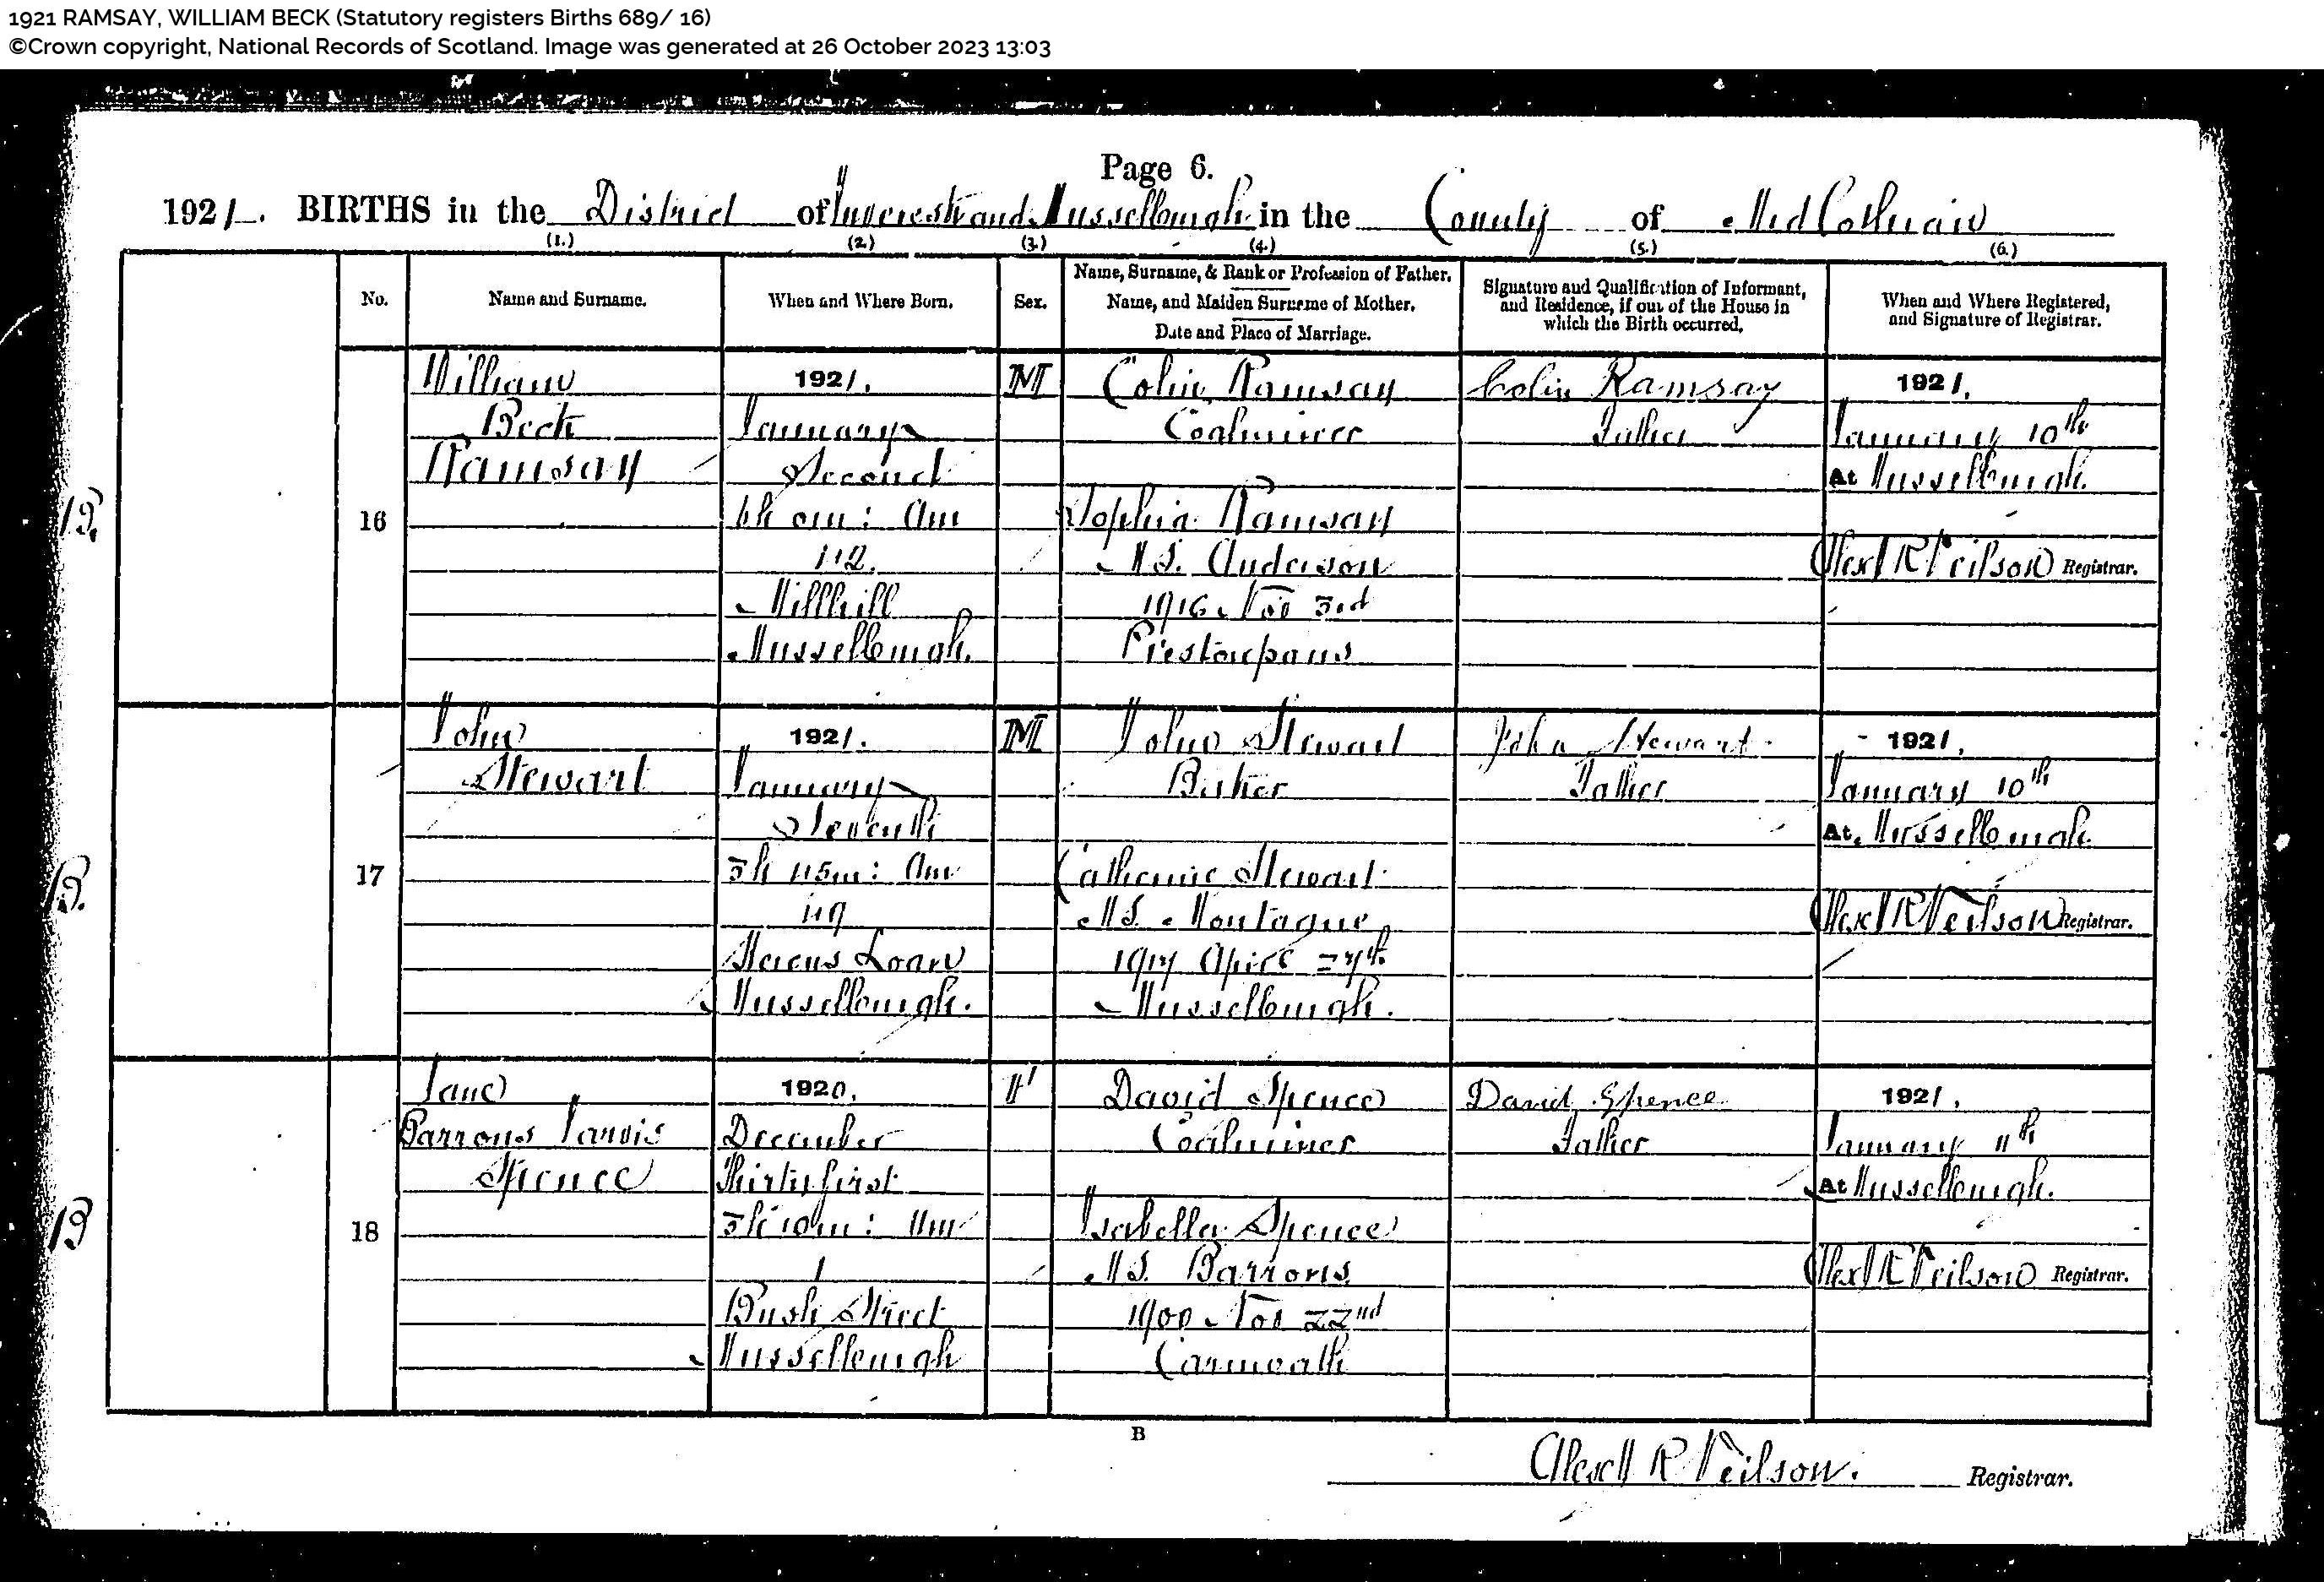 1921 RAMSAY, WILLIAM BECK (Statutory registers Births 689/ 16)
©Crown copyright, National Records of Scotland. Image was generated at 26 October 2023 13:03
Page 6.
1921. BIRTHS in the District of Inveresk and Musselburgh in the County of MidLothian
(1.) (2.) (3.) (4.) (5.) (6.)
No.
Name and Surname.
When and Where Born.
Sex.
Name, Surname, & Rank or Profession of Father.
Name, and Maiden Surname of Mother.
Date and Place of Marriage.
Signature and Qualification of Informant,
and Residence, if out of the House in
which the Birth occurred.
When and Where Registered,
and Signature of Registrar.
B.
16
William
Beck
Ramsay
1921.
January
Second
Am
Millhill
Musselburgh.
M
Colin Ramsay
Coalminer
Sophia Ramsay
M.S. Anderson
1916 Nov 3rd
Prestonpans
Colin Ramsay
Father
1921.
January 10th
At Musselburgh.
Alexr R Neilson Registrar.
B.
17
John
Stewart
1921.
January
Seventh
3h 45m: Am
49
Loan
Musselburgh.
M
John Stewart
Baker
Catherine Stewart
M.S. Montague
April 27th
Musselburgh.
John Stewart
Father
1921.
January 10th
At Musselburgh.
Alexr R Neilson Registrar.
B
18
Jane
Barrons Jarvis
Spence
1920.
December
Thirty first
3h 10m: Am
1
Bush Street
Musselburgh
F
David Spence
Coalminer
Isabella Spence
M.S. Barrons
1900 Nov 22nd
Carnwath
David Spence
Father
1921.
January 11th
At Musselburgh.
Alexr R Neilson Registrar.
B
Alexr R Neilson. Registrar.